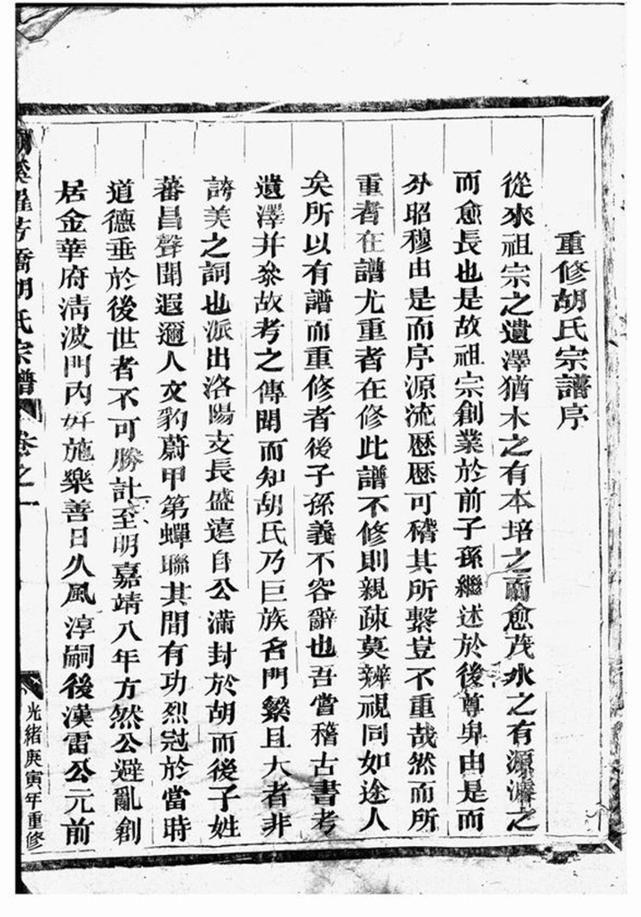 重修胡氏宗譜序
從來祖宗之遺澤猶木之有本培之而愈茂水之有源濬之
而愈長也是故祖宗創業於前子孫繼述於後尊卑由是而
分昭穆由是而序源流歷歷可稽其所繫豈不重哉然而所
重者在譜尤重者在修此譜不修則親疎莫辨視同如途人
矣所以有譜而重修者後子孫義不容辭也吾嘗稽古書考
遺澤并叅故考之傳聞而知胡氏乃巨族名門繁且大者非
誇美之詞也派出洛陽支長盛遠自公滿封於胡而後子姓
蕃昌聲聞遐邇人文豹蔚甲第蟬聯其間有功烈冠於當時
道德垂於後世者不可勝計至明嘉靖八年方然公避亂創
居金華府清波門內好施樂善日久風淳嗣後漢雷公元前
芳橋胡氏宗譜 卷之一
光緒庚寅年重修